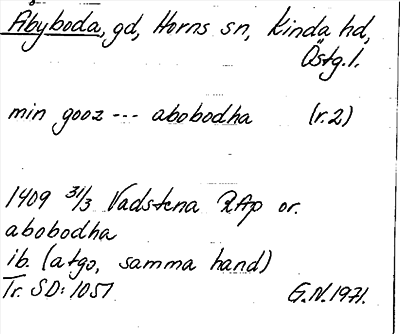 Åbyboda, gd, Horns sn, Kinda hd,
Östg. l.
min gooz --- abobodha (r. 2)
1409 31/3 Vadstena RAp or.
abobodha
ib. (atgo, samma hand)
Tr. SD: 1051 G.N. 1971.